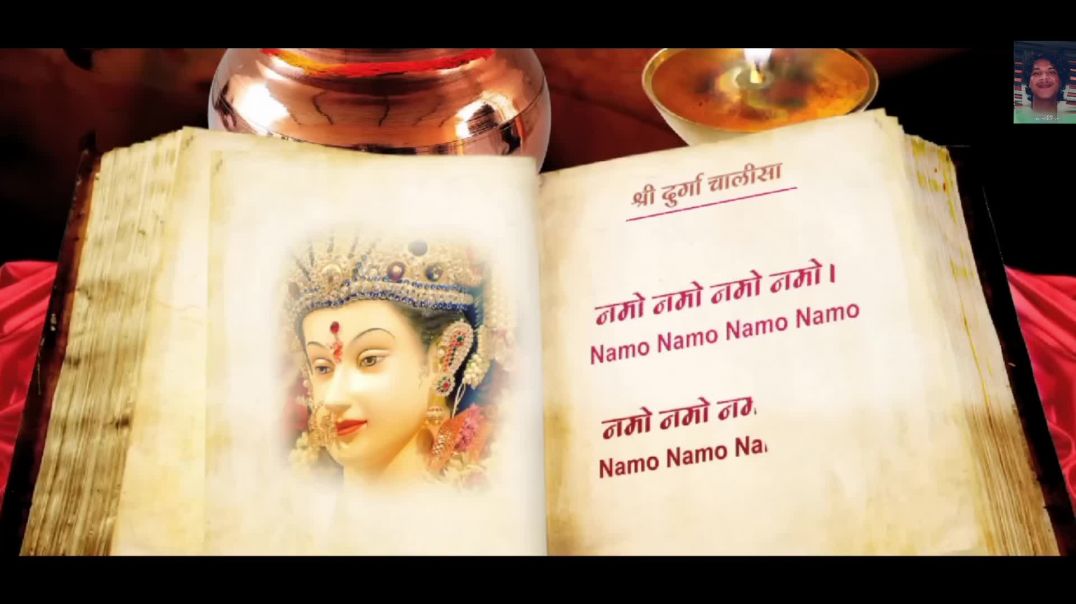 श्री दुर्गा चालीसा
नमो नमो नमो नमो।
Namo Namo Namo Namo
नमो नमो
Namo Namo